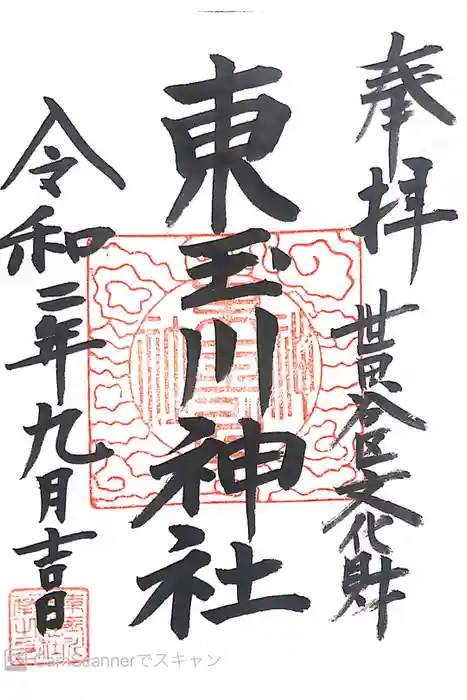 奉拝
世田谷区文化財
東玉川神社
令和二年九月吉日
CamScannerでスキャン